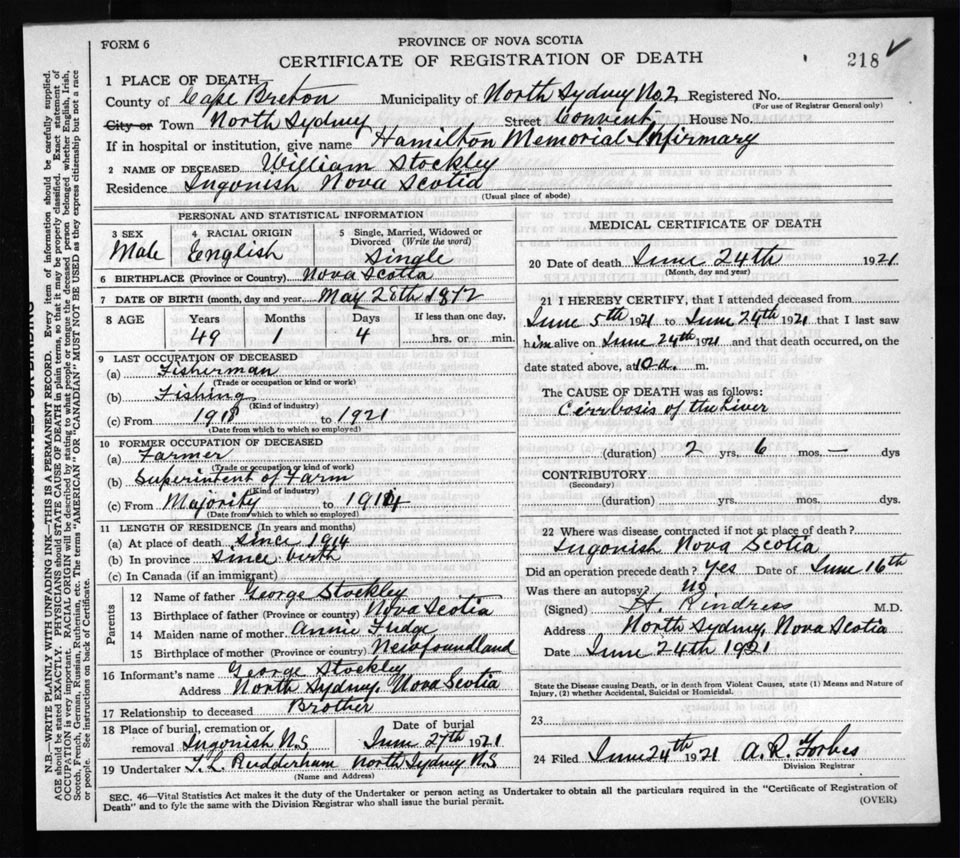 FORM 6
PROVINCE OF NOVA SCOTIA
CERTIFICATE OF REGISTRATION OF DEATH
218
1 PLACE OF DEATH
County of Cape Breton Municipality of North Sydney No. 2 Registered No.
(For use of Registrar General only)
City or Town North Sydney Street Convent House No.
If in hospital or institution, give name Hamilton Memorial Infirmary
2 NAME OF DECEASED William Stockley
Residence Ingonish Nova Scotia
(Usual place of abode)
PERSONAL AND STATISTICAL INFORMATION
3 SEX 4 RACIAL ORIGIN 5 Single, Married, Widowed or Divorced (Write the word)
Male English Single
6 BIRTHPLACE (Province or Country) Nova Scotia
7 DATE OF BIRTH (month, day and year) May 28th 1872
8 AGE Years Months Days If less than one day,
49 1 4 hrs. or min.
9 LAST OCCUPATION OF DECEASED
(a) Fisherman
(Trade or occupation or kind or work)
(b) Fishing
(Kind of industry)
(c) From 1918 to 1921
(Date from which to which so employed)
10 FORMER OCCUPATION OF DECEASED
(a) Farmer
(Trade or occupation or kind of work)
(b) Superintent of Farm
(Kind of industry)
(c) From Majority to 1914
(Date from which to which so employed)
11 LENGTH OF RESIDENCE (In years and months)
(a) At place of death since 1914
(b) In province since birth
(c) In Canada (if an immigrant)
Parents
12 Name of father George Stockley
13 Birthplace of father (Province or country) Nova Scotia
14 Maiden name of mother Annie Fudge
15 Birthplace of mother (Province or country) Newfoundland
16 Informant's name George Stockley
Address North Sydney, Nova Scotia
17 Relationship to deceased Brother
18 Place of burial, cremation or removal Ingonish N.S
Date of burial June 27th 1921
19 Undertaker T. L. Rudderham North Sydney N.S
(Name and Address)
MEDICAL CERTIFICATE OF DEATH
20 Date of death June 24th 1921
(Month, day and year)
21 I HEREBY CERTIFY, that I attended deceased from
June 5th 1921 to June 24th 1921 that I last saw
him alive on June 24th 1921 and that death occurred, on the
date stated above, at 10 a. m.
The CAUSE OF DEATH was as follows:
Cirrhosis of the Liver
(duration) 2 yrs. 6 mos. — dys
CONTRIBUTORY
(Secondary)
(duration) yrs. mos. dys.
22 Where was disease contracted if not at place of death?
Ingonish Nova Scotia
Did an operation precede death? Yes Date of June 16th
Was there an autopsy? no
(Signed) H. Rindress M.D.
Address North Sydney, Nova Scotia
Date June 24th 1921
State the Disease causing Death, or in death from Violent Causes, state (1) Means and Nature of
Injury, (2) whether Accidental, Suicidal or Homicidal.
23
24 Filed June 24th 1921 A. R. Forbes
Division Registrar
SEC. 46—Vital Statistics Act makes it the duty of the Undertaker or person acting as Undertaker to obtain all the particulars required in the "Certificate of Registration of
Death" and to fyle the same with the Division Registrar who shall issue the burial permit.
(OVER)
N.B.—WRITE PLAINLY WITH UNFADING INK—THIS IS A PERMANENT RECORD. Every item of information should be carefully supplied.
AGE should be stated EXACTLY. PHYSICIANS should STATE CAUSE OF DEATH in plain terms, so that it may be properly classified. Exact statement of
OCCUPATION is very important. RACIAL ORIGIN will be described by stating to what people or tongue the deceased person belonged whether English, Irish,
Scotch, French, German, Russian, Ruthenian, etc. The terms "AMERICAN" or "CANADIAN" MUST NOT BE USED as they express citizenship but not a race
or people. See instructions on back of Certificate.